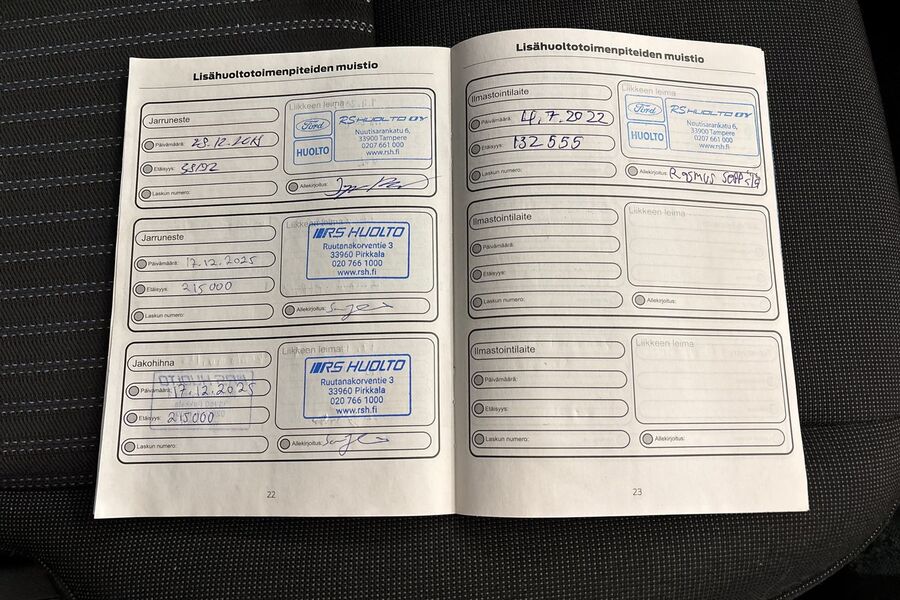 Lisähuoltotoimenpiteiden muistio
Jarruneste
Liikkeen leima
Ford
HUOLTO
RS HUOLTO OY
Nuutisarankatu 6,
33900 Tampere
0207 661 000
www.rsh.fi
Päivämäärä:
Etäisyys:
Laskun numero:
Allekirjoitus:
Jarruneste
Liikkeen leima
RS HUOLTO
Ruutanakorventie 3
33960 Pirkkala
020 766 1000
www.rsh.fi
Päivämäärä: 17.12.2025
Etäisyys: 215000
Laskun numero:
Allekirjoitus:
Jakohihna
Liikkeen leima
RS HUOLTO
Ruutanakorventie 3
33960 Pirkkala
020 766 1000
www.rsh.fi
Päivämäärä: 17.12.2025
Etäisyys: 215000
Laskun numero:
Allekirjoitus:
22
Lisähuoltotoimenpiteiden muistio
Ilmastointilaite
Liikkeen leima
Ford
HUOLTO
RS HUOLTO OY
Nuutisarankatu 6,
33900 Tampere
0207 661 000
www.rsh.fi
Päivämäärä: 7.2022
Etäisyys: 132555
Laskun numero:
Allekirjoitus: Rasmus
Ilmastointilaite
Liikkeen leima
Päivämäärä:
Etäisyys:
Laskun numero:
Allekirjoitus:
Ilmastointilaite
Liikkeen leima
Päivämäärä:
Etäisyys:
Laskun numero:
Allekirjoitus:
23